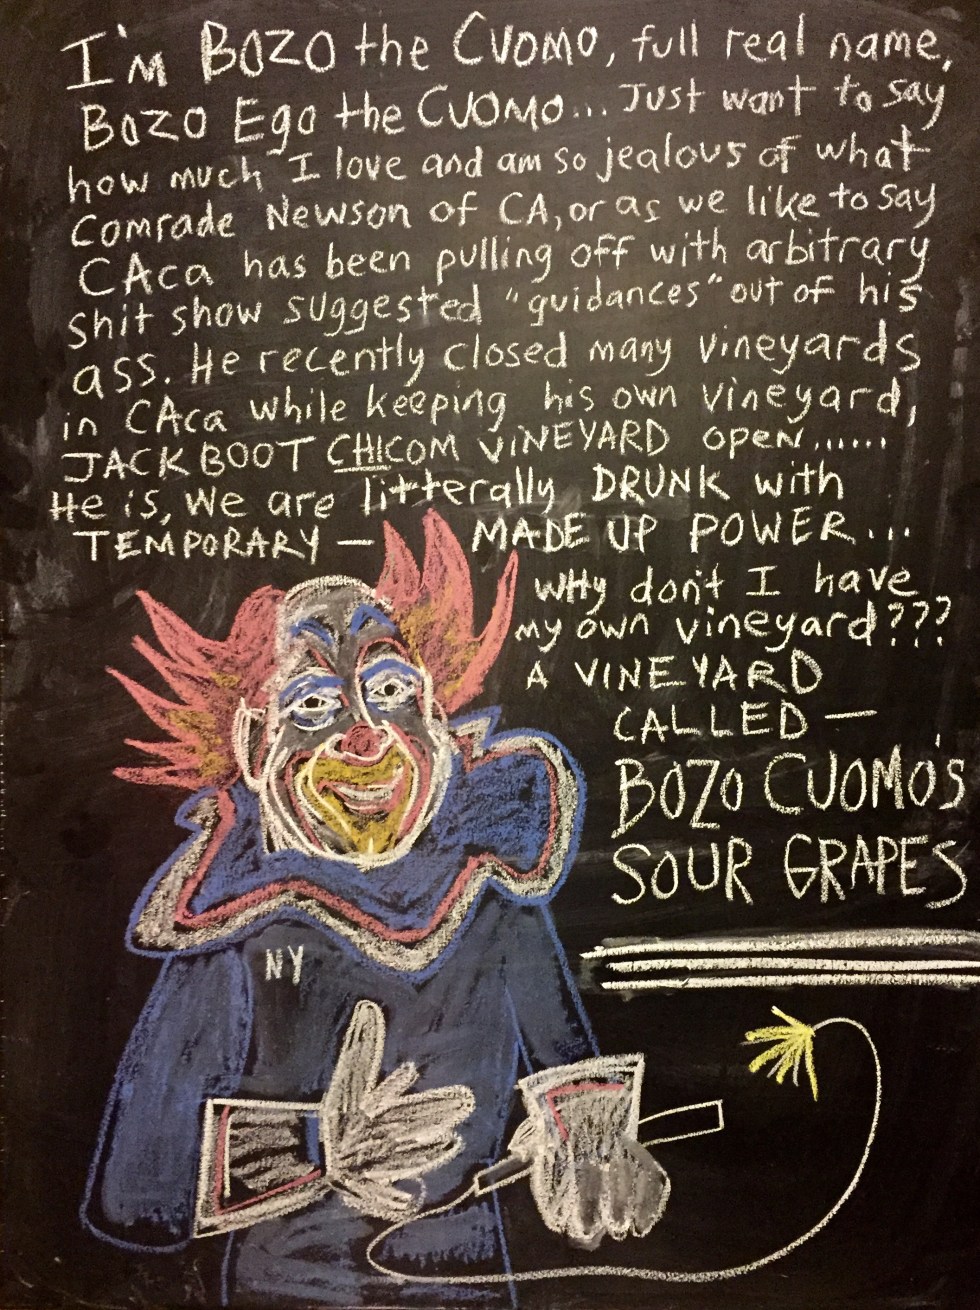 I'm BOZO the CUOMO, full real name,
BOZO Ego the CUOMO... Just want to say
how much I love and am so jealous of what
Comrade Newson of CA, or as we like to say
CAca has been pulling off with arbitrary
shit show suggested "guidances" out of his
ass. He recently closed many vineyards
in CAca while keeping his own vineyard,
JACK BOOT CHICOM VINEYARD open......
He is, we are litterally DRUNK with
TEMPORARY — MADE UP POWER...
why don't I have
my own vineyard???
A VINEYARD
CALLED —
BOZO CUOMO'S
SOUR GRAPES
NY